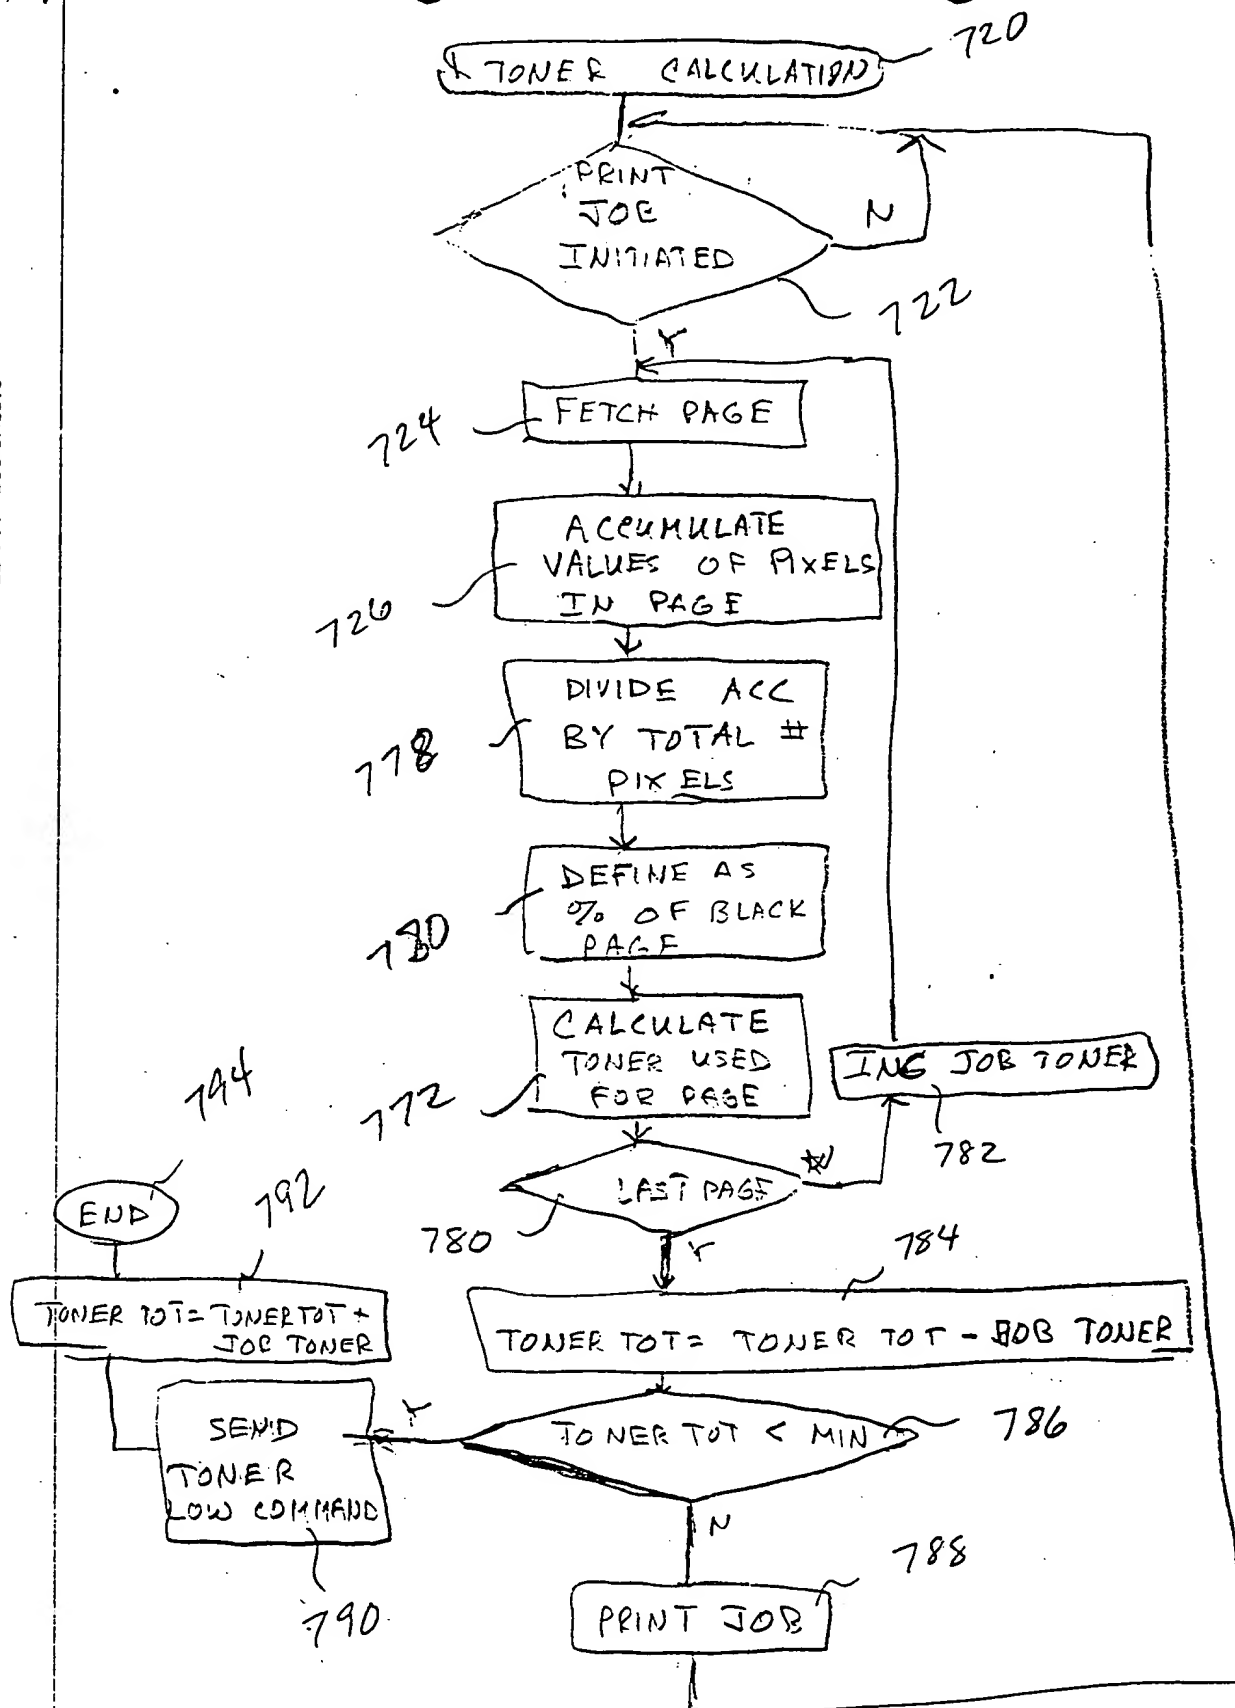 TONER CALCULATION
720
PRINT
JOB
INITIATED
N
722
Y
FETCH PAGE
724
ACCUMULATE
VALUES OF PIXELS
IN PAGE
726
DIVIDE ACC
BY TOTAL #
PIXELS
778
DEFINE AS
% OF BLACK
PAGE
780
CALCULATE
TONER USED
FOR PAGE
772
ING JOB TONER
782
LAST PAGE
N
780
Y
794
END
792
TONER TOT = TONER TOT +
JOB TONER
784
TONER TOT = TONER TOT - JOB TONER
TONER TOT < MIN
786
Y
SEND
TONER
LOW COMMAND
790
N
788
PRINT JOB